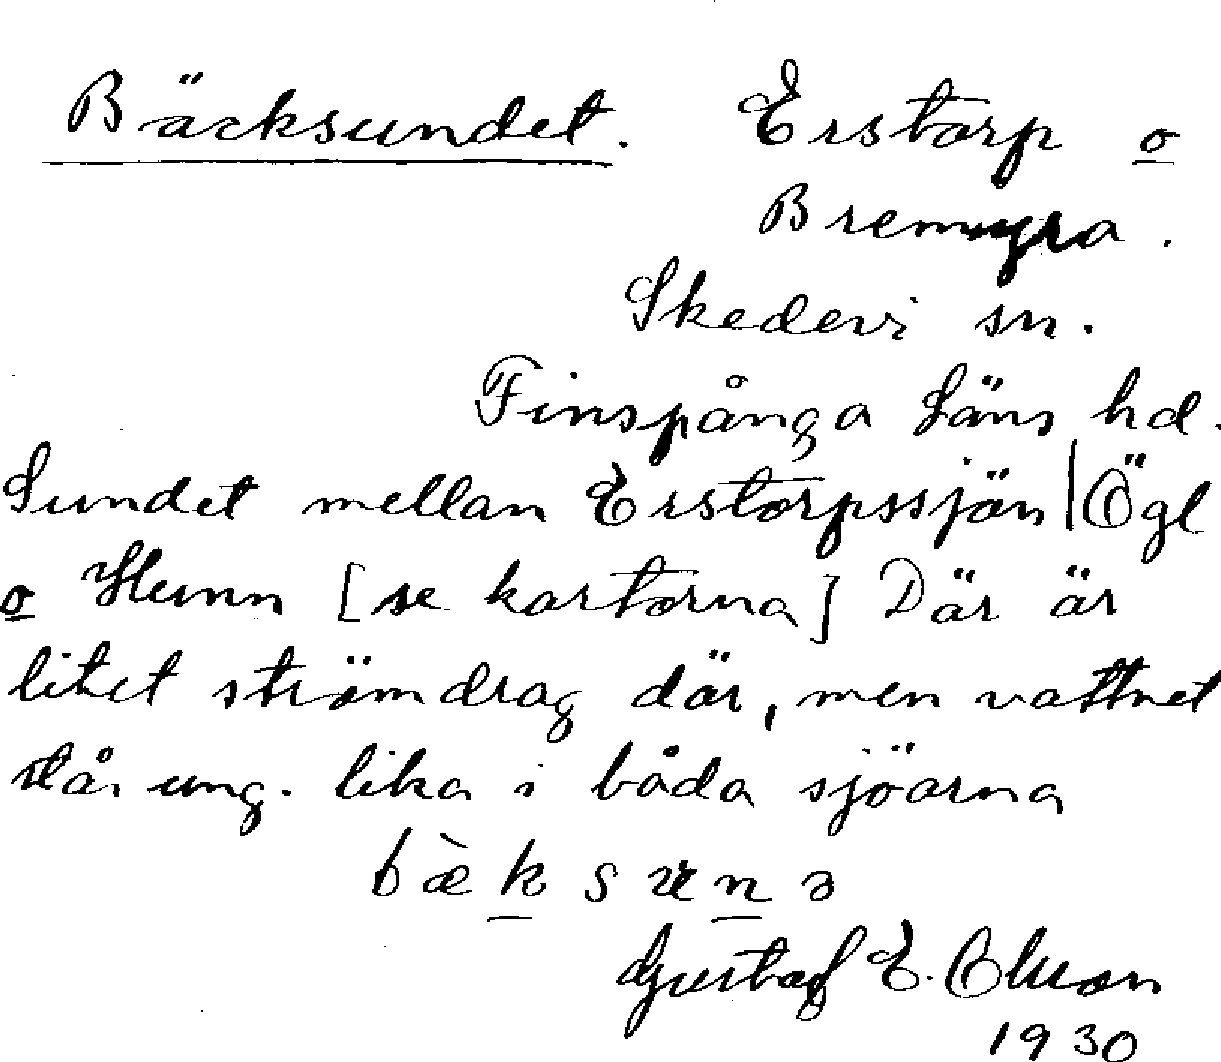 Bäcksundet. Erstorp o
Bremyra.
Skedevi sn.
Finspånga Läns hd.
Sundet mellan Erstorpssjön | Ögl
o Hunn [se kartorna] Där är
litet strömdrag där, men vattnet
står ung. lika i båda sjöarna
bæ̀ksunə
Gustaf E. Olsson
1930